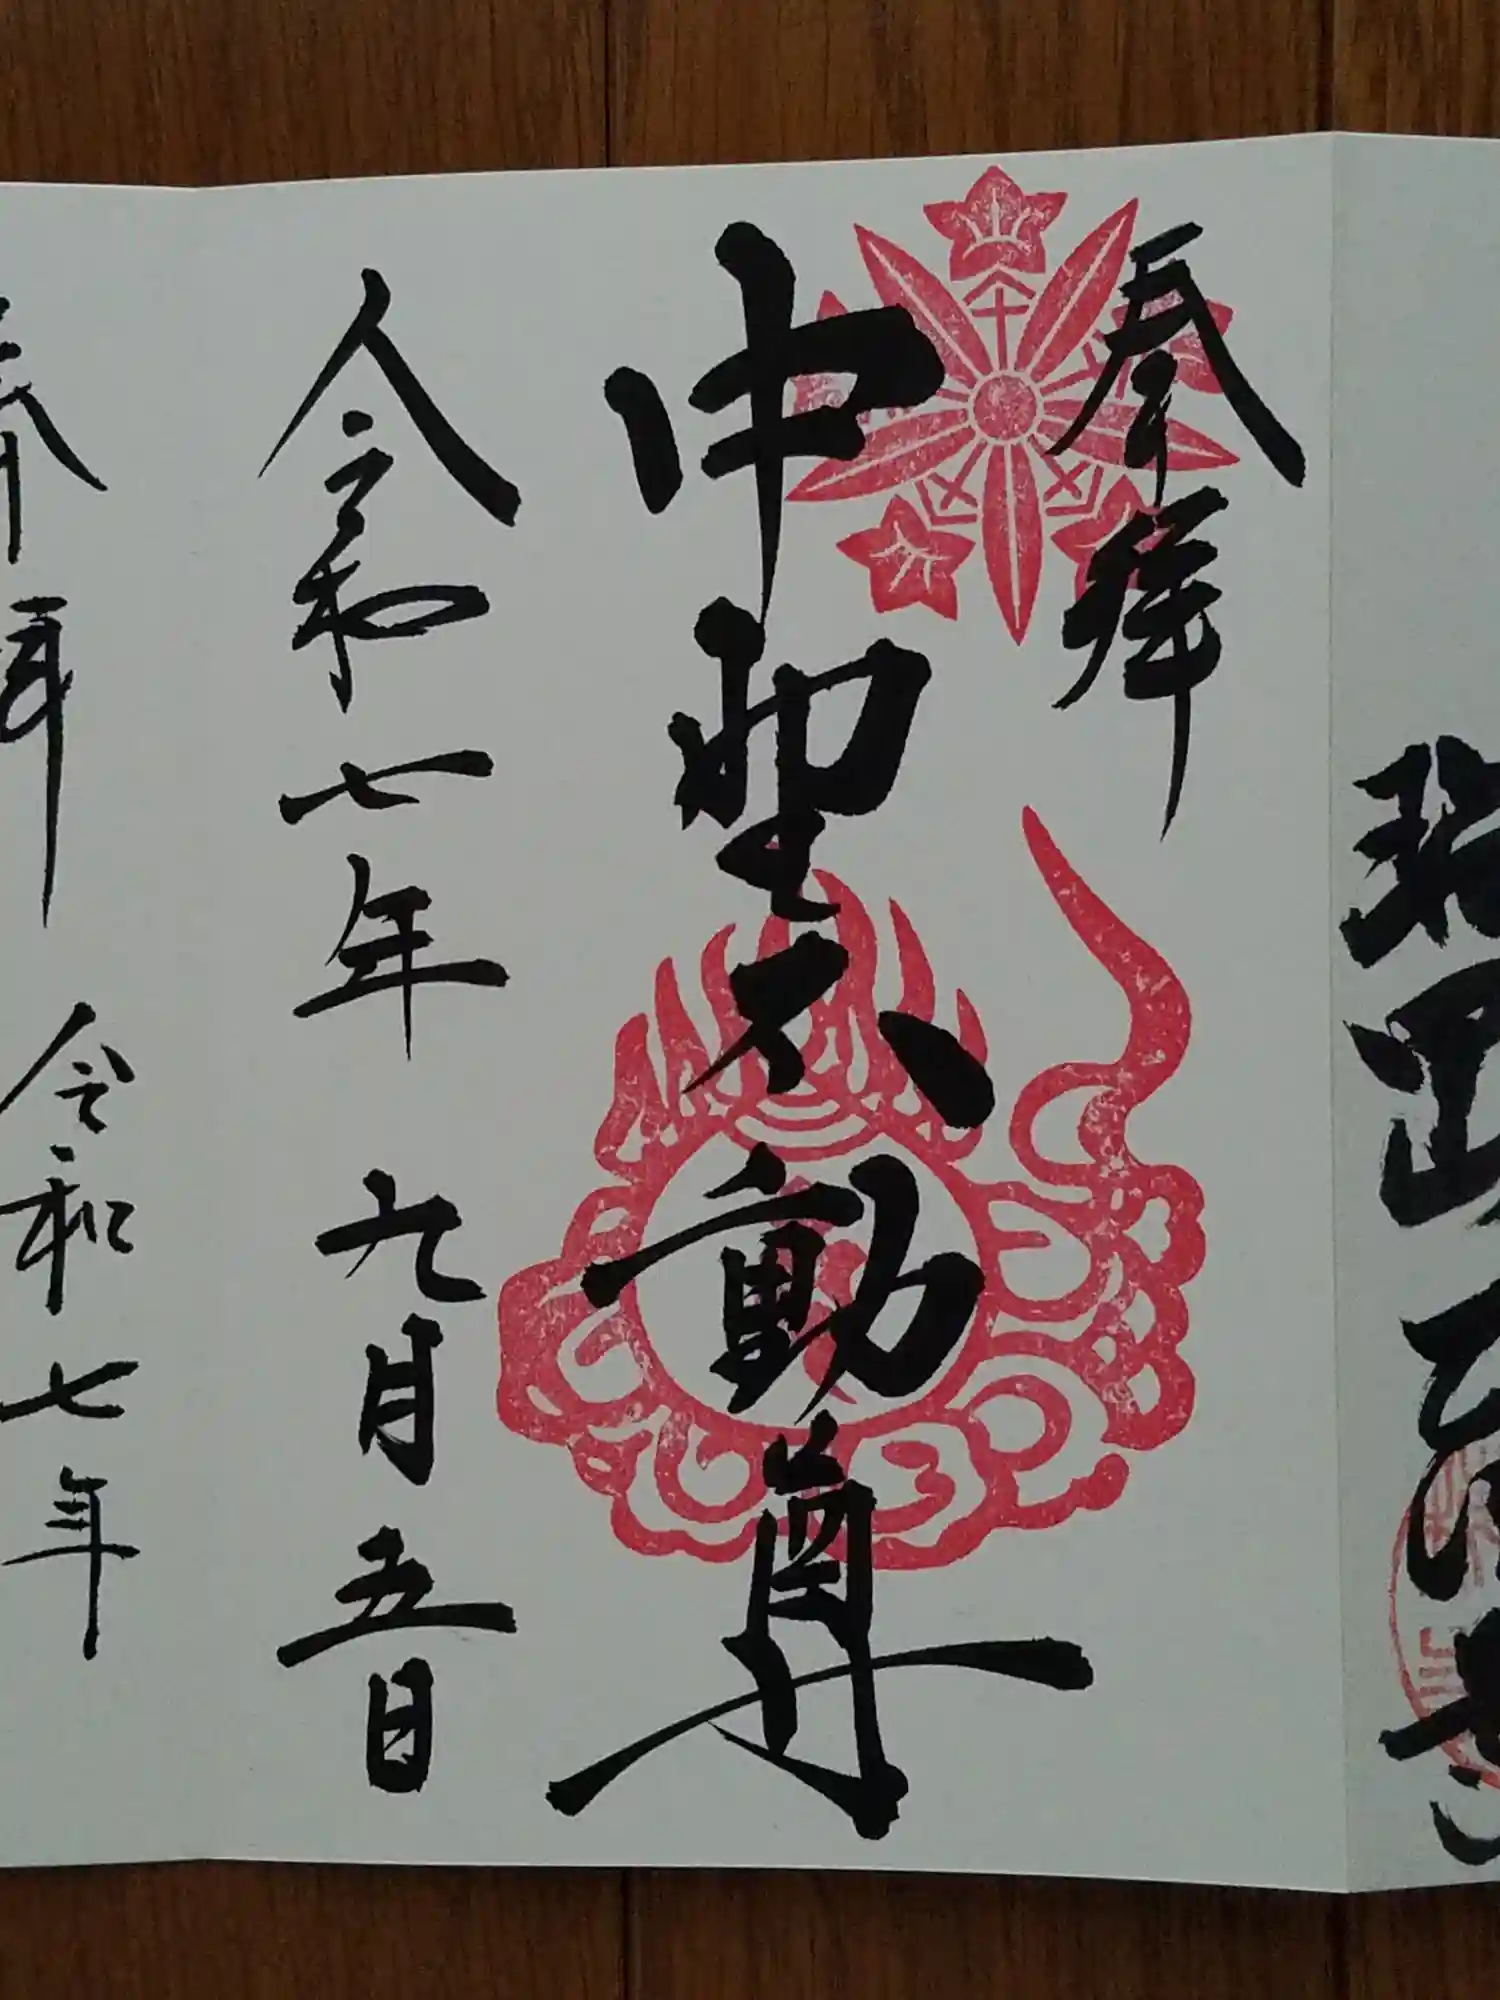 奉拝
中聖不動尊
令和七年 九月五日
奉拝
令和七年